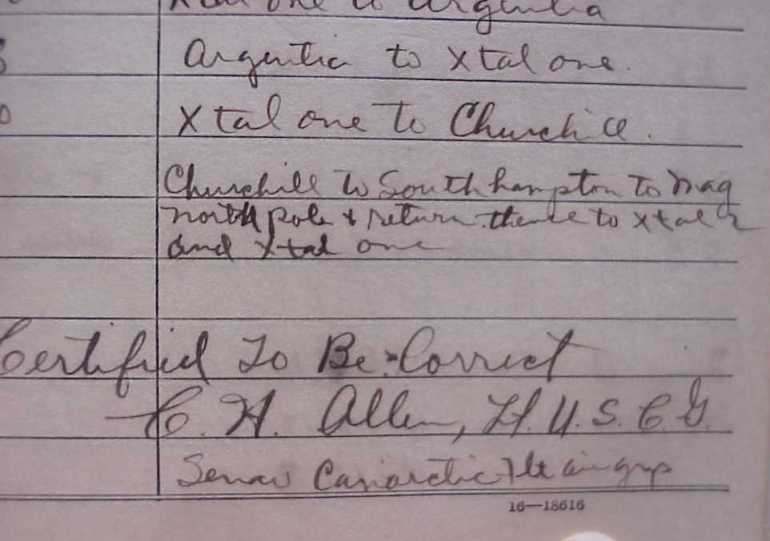 Xtal one to Argentia
Argentia to Xtal one.
Xtal one to Churchill.
Churchill to Southhampton to Mag
north pole & return thence to xtal 2
and xtal one
Certified To Be Correct
C. H. Allen, Lt. U.S.C.G.
16—18616